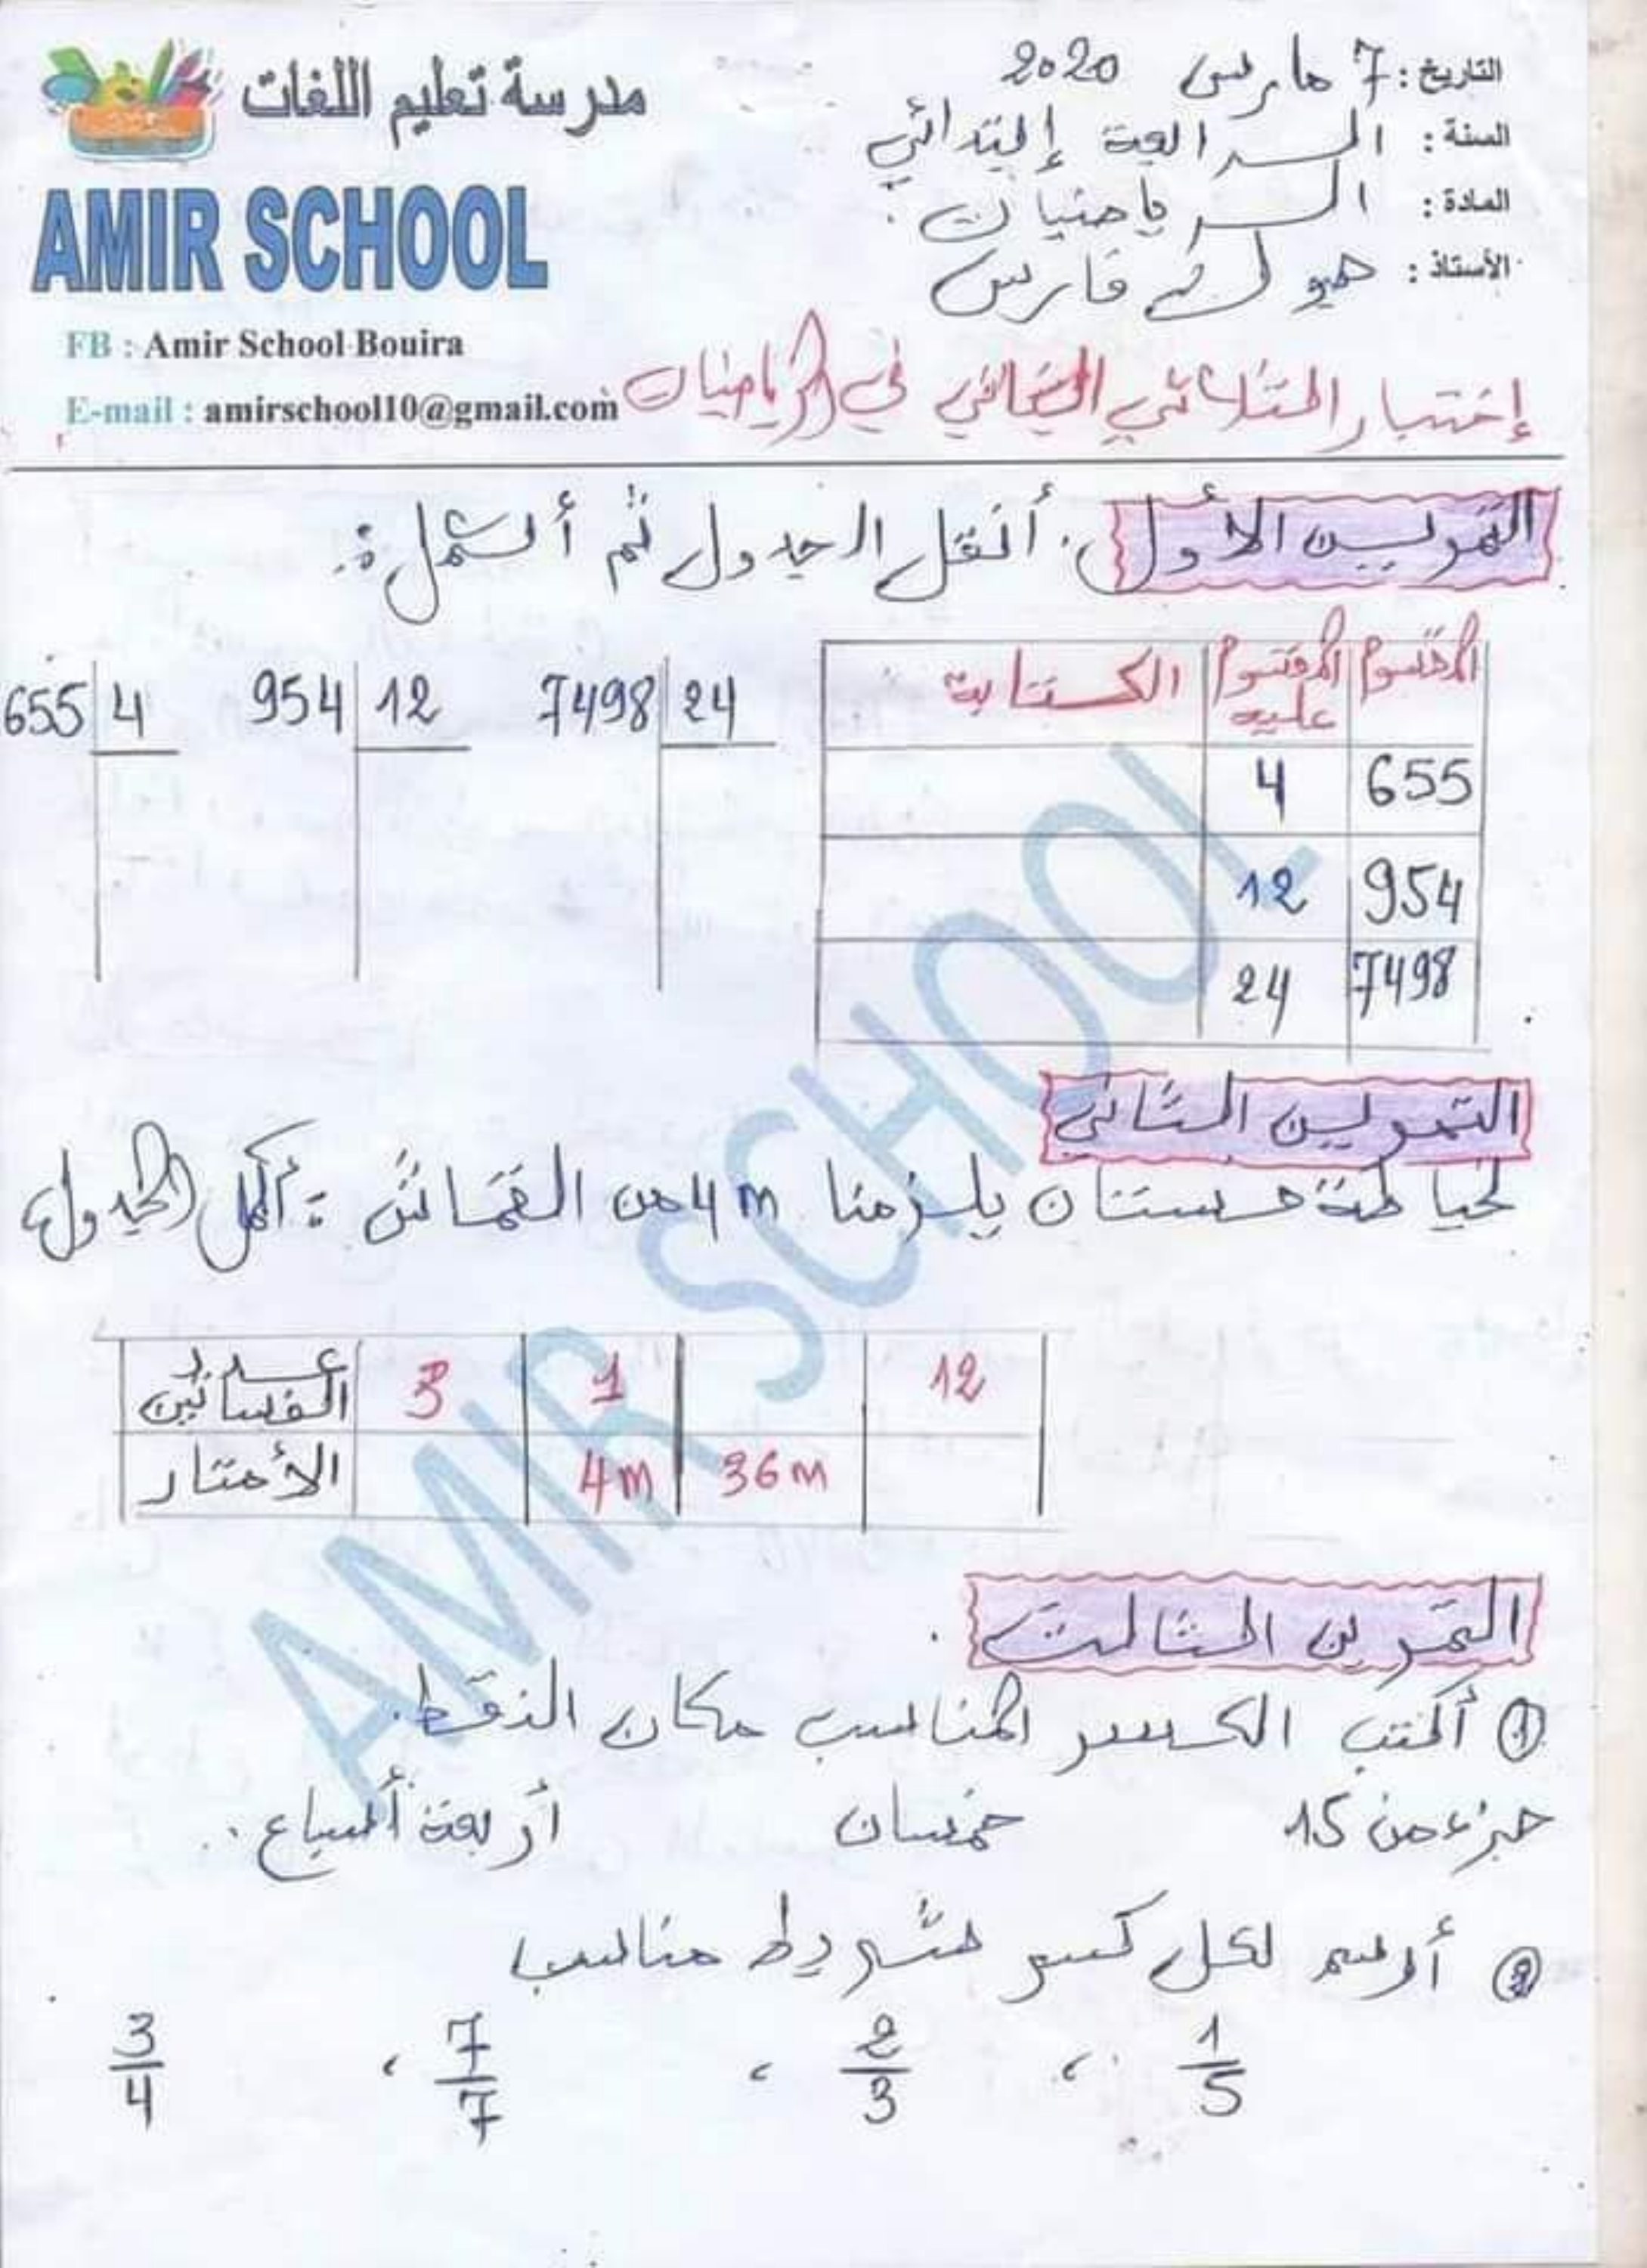 مدرسة تعليم اللغات
AMIR SCHOOL
FB : Amir School Bouira
E-mail : amirschool10@gmail.com
التاريخ : 7 مارس 2020
السنة : الرابعة إبتدائي
المادة : الرياضيات
الأستاذ : فارس
إختبار الثلاثي الثاني في الرياضيات
التمرين الأول : أنقل الجدول ثم أكمل :
المقسوم المقسوم عليه الكتابة
655 4
954 12
7498 24
7498 24
954 12
655 4
التمرين الثاني
لخياطة فستان يلزمنا 4m من القماش : أكمل الجدول
عدد الفساتين 3 1 12
الأمتار 4m 36m
التمرين الثالث
① أكتب الكسر المناسب مكان النقط.
جزء من 15 خمسان أربعة أسباع ..
② أرسم لكل كسر شريط مناسب
1/5 ، 2/3 ، 7/7 ، 3/4
AMIR SCHOOL